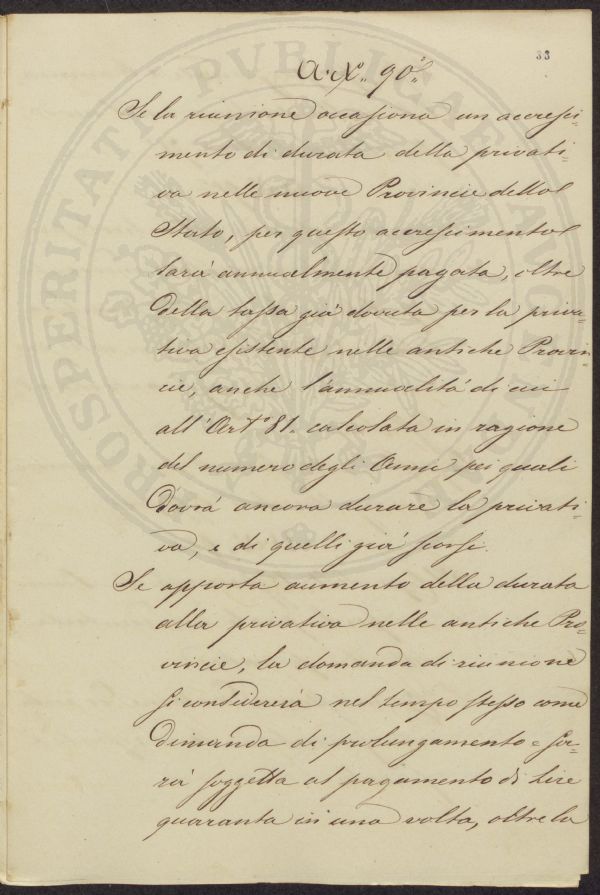 33
Art.° 90.°
Se la riunione occasiona un accresci=
mento di durata della privati=
va nelle nuove Provincie dello
Stato, per questo accrescimento
sarà annualmente pagata, oltre
della tassa già dovuta per la priva=
tiva esistente nelle antiche Provin
cie, anche l'annualità di cui
all'Art.° 81. calcolata in ragione
del numero degli Anni pei quali
dovrà ancora durare la privati=
va, e di quelli già scorsi.
Se apporta aumento della durata
alla privativa nelle antiche Pro=
vincie, la domanda di riunione
si considererà nel tempo stesso come
dimanda di prolungamento e sa=
rà soggetta al pagamento di Lire
quaranta in una volta, oltre la
PROSPERITATI PUBLICAE AUGENDAE